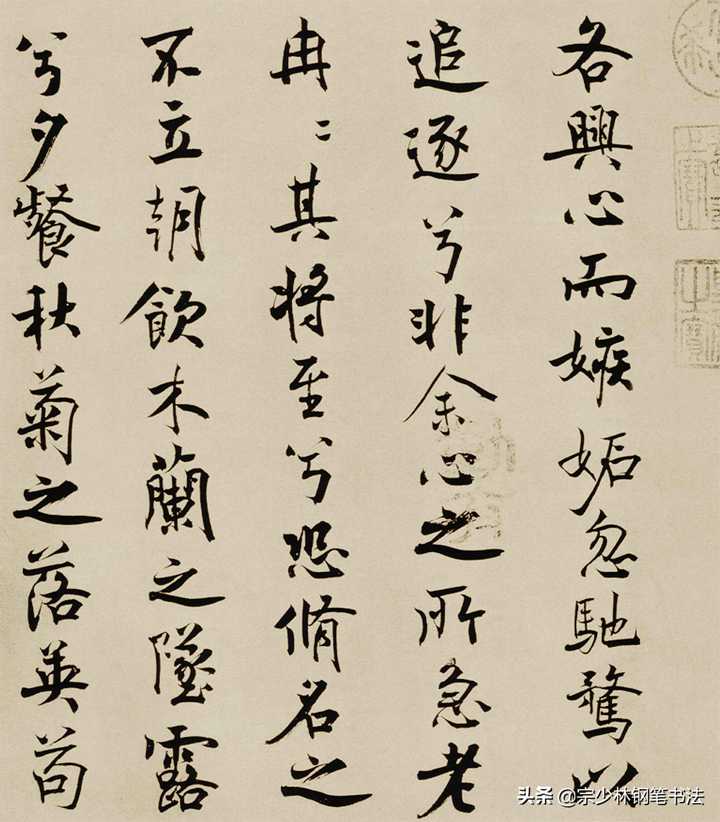 各興心而嫉妬忽馳騖以
追逐兮非余心之所急老
冉〻其將至兮恐脩名之
不立朝飲木蘭之墜露
兮夕餐秋菊之落英苟
头条 @宗少林钢笔书法